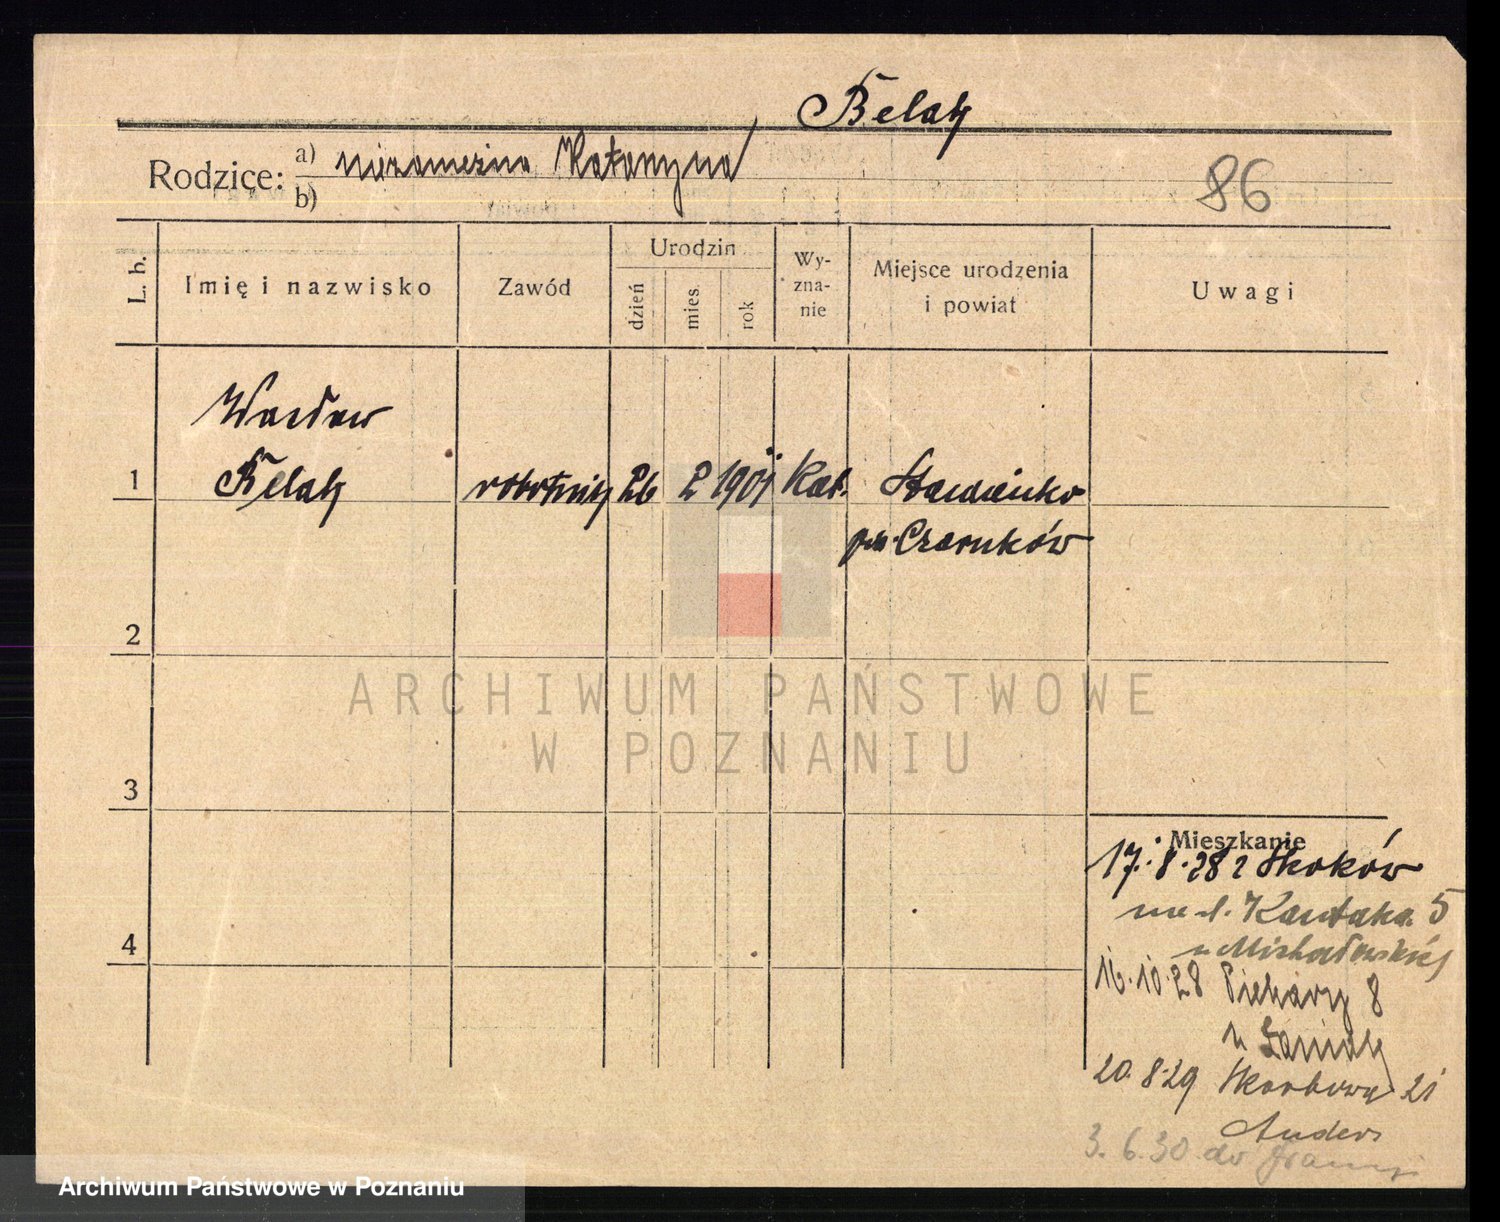 Belak
Rodzice: a) niezamężna Katarzyna
b)
86
L. b.
Imię i nazwisko
Zawód
Urodzin
dzień
mies.
rok
Wy-
zna-
nie
Miejsce urodzenia
i powiat
Uwagi
Wacław
1 Belak robotnik 26 2 1901 kat.
pow. Czarnków
2
ARCHIWUM PAŃSTWOWE
W POZNANIU
3
Mieszkanie
17.8.28 z Skoków
Kantaka 5
u Michałowskiej
4
16.10.28 Piekary 8
u
20.8.29 Skarbowa 21
Anders
3.6.30 do Francji
Archiwum Państwowe w Poznaniu